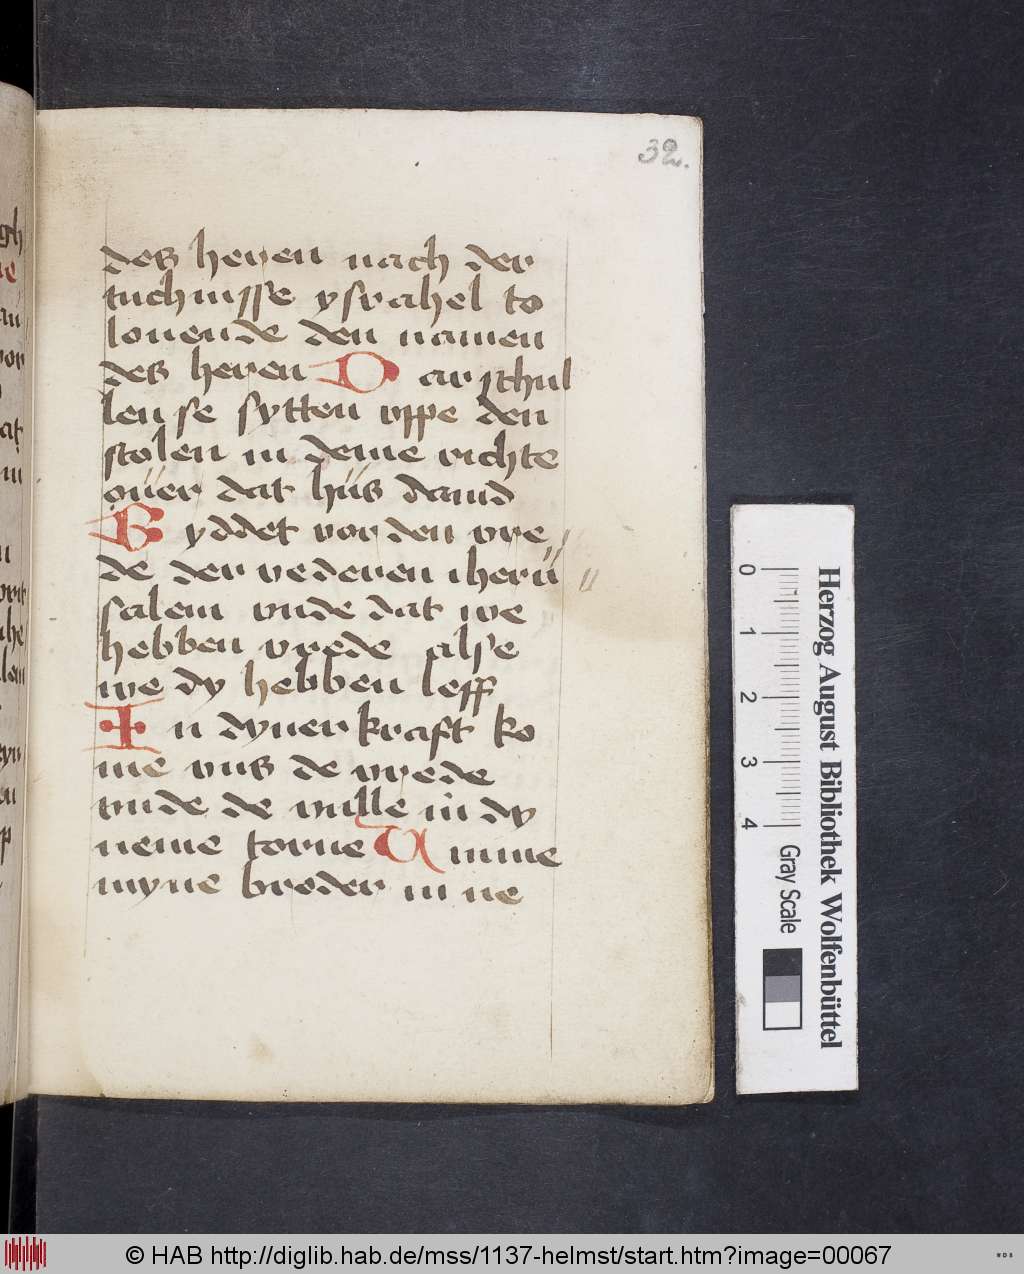 32.
des heren nach der
tuchnisse ysrahel to
louende den namen
des heren Dar schul
len se sytten vppe den
stolen in deme richte
ouer dat hus dauid
Byddet vor den vre
de der vederen iheru
salem vnde dat we
hebben vrede alse
we dy hebben leff
In dyner kraft ko
me vns de vrede
vnde de vulle in dy
neme torne Umme
myne broder in ne
0 1 2 3 4
Gray Scale
Herzog August Bibliothek Wolfenbüttel
© HAB http://diglib.hab.de/mss/1137-helmst/start.htm?image=00067